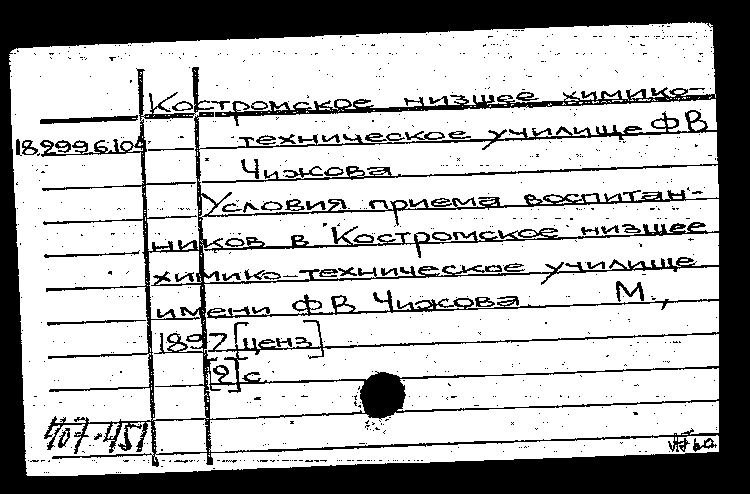 Костромское низшее химико-
18.299.6.104
техническое училище ФВ
Чижова
Условия приема воспитан-
ников в Костромское низшее
химико-техническое училище
имени ФВ Чижова М.,
1897 [ценз]
[2] с
407-451